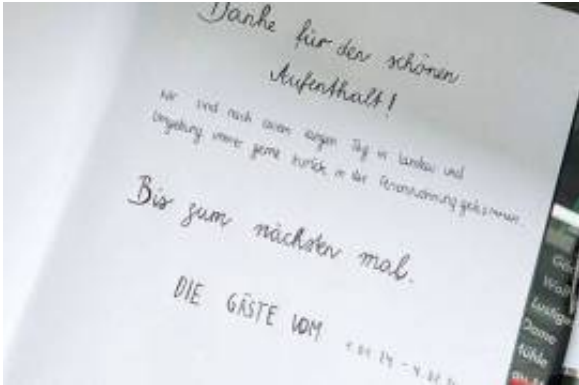 Danke für den schönen
Aufenthalt!
Wir sind nach einem langen Tag in Landau und
Umgebung immer gerne zurück in die Ferienwohnung gekommen.
Bis zum nächsten mal.
DIE GÄSTE VOM